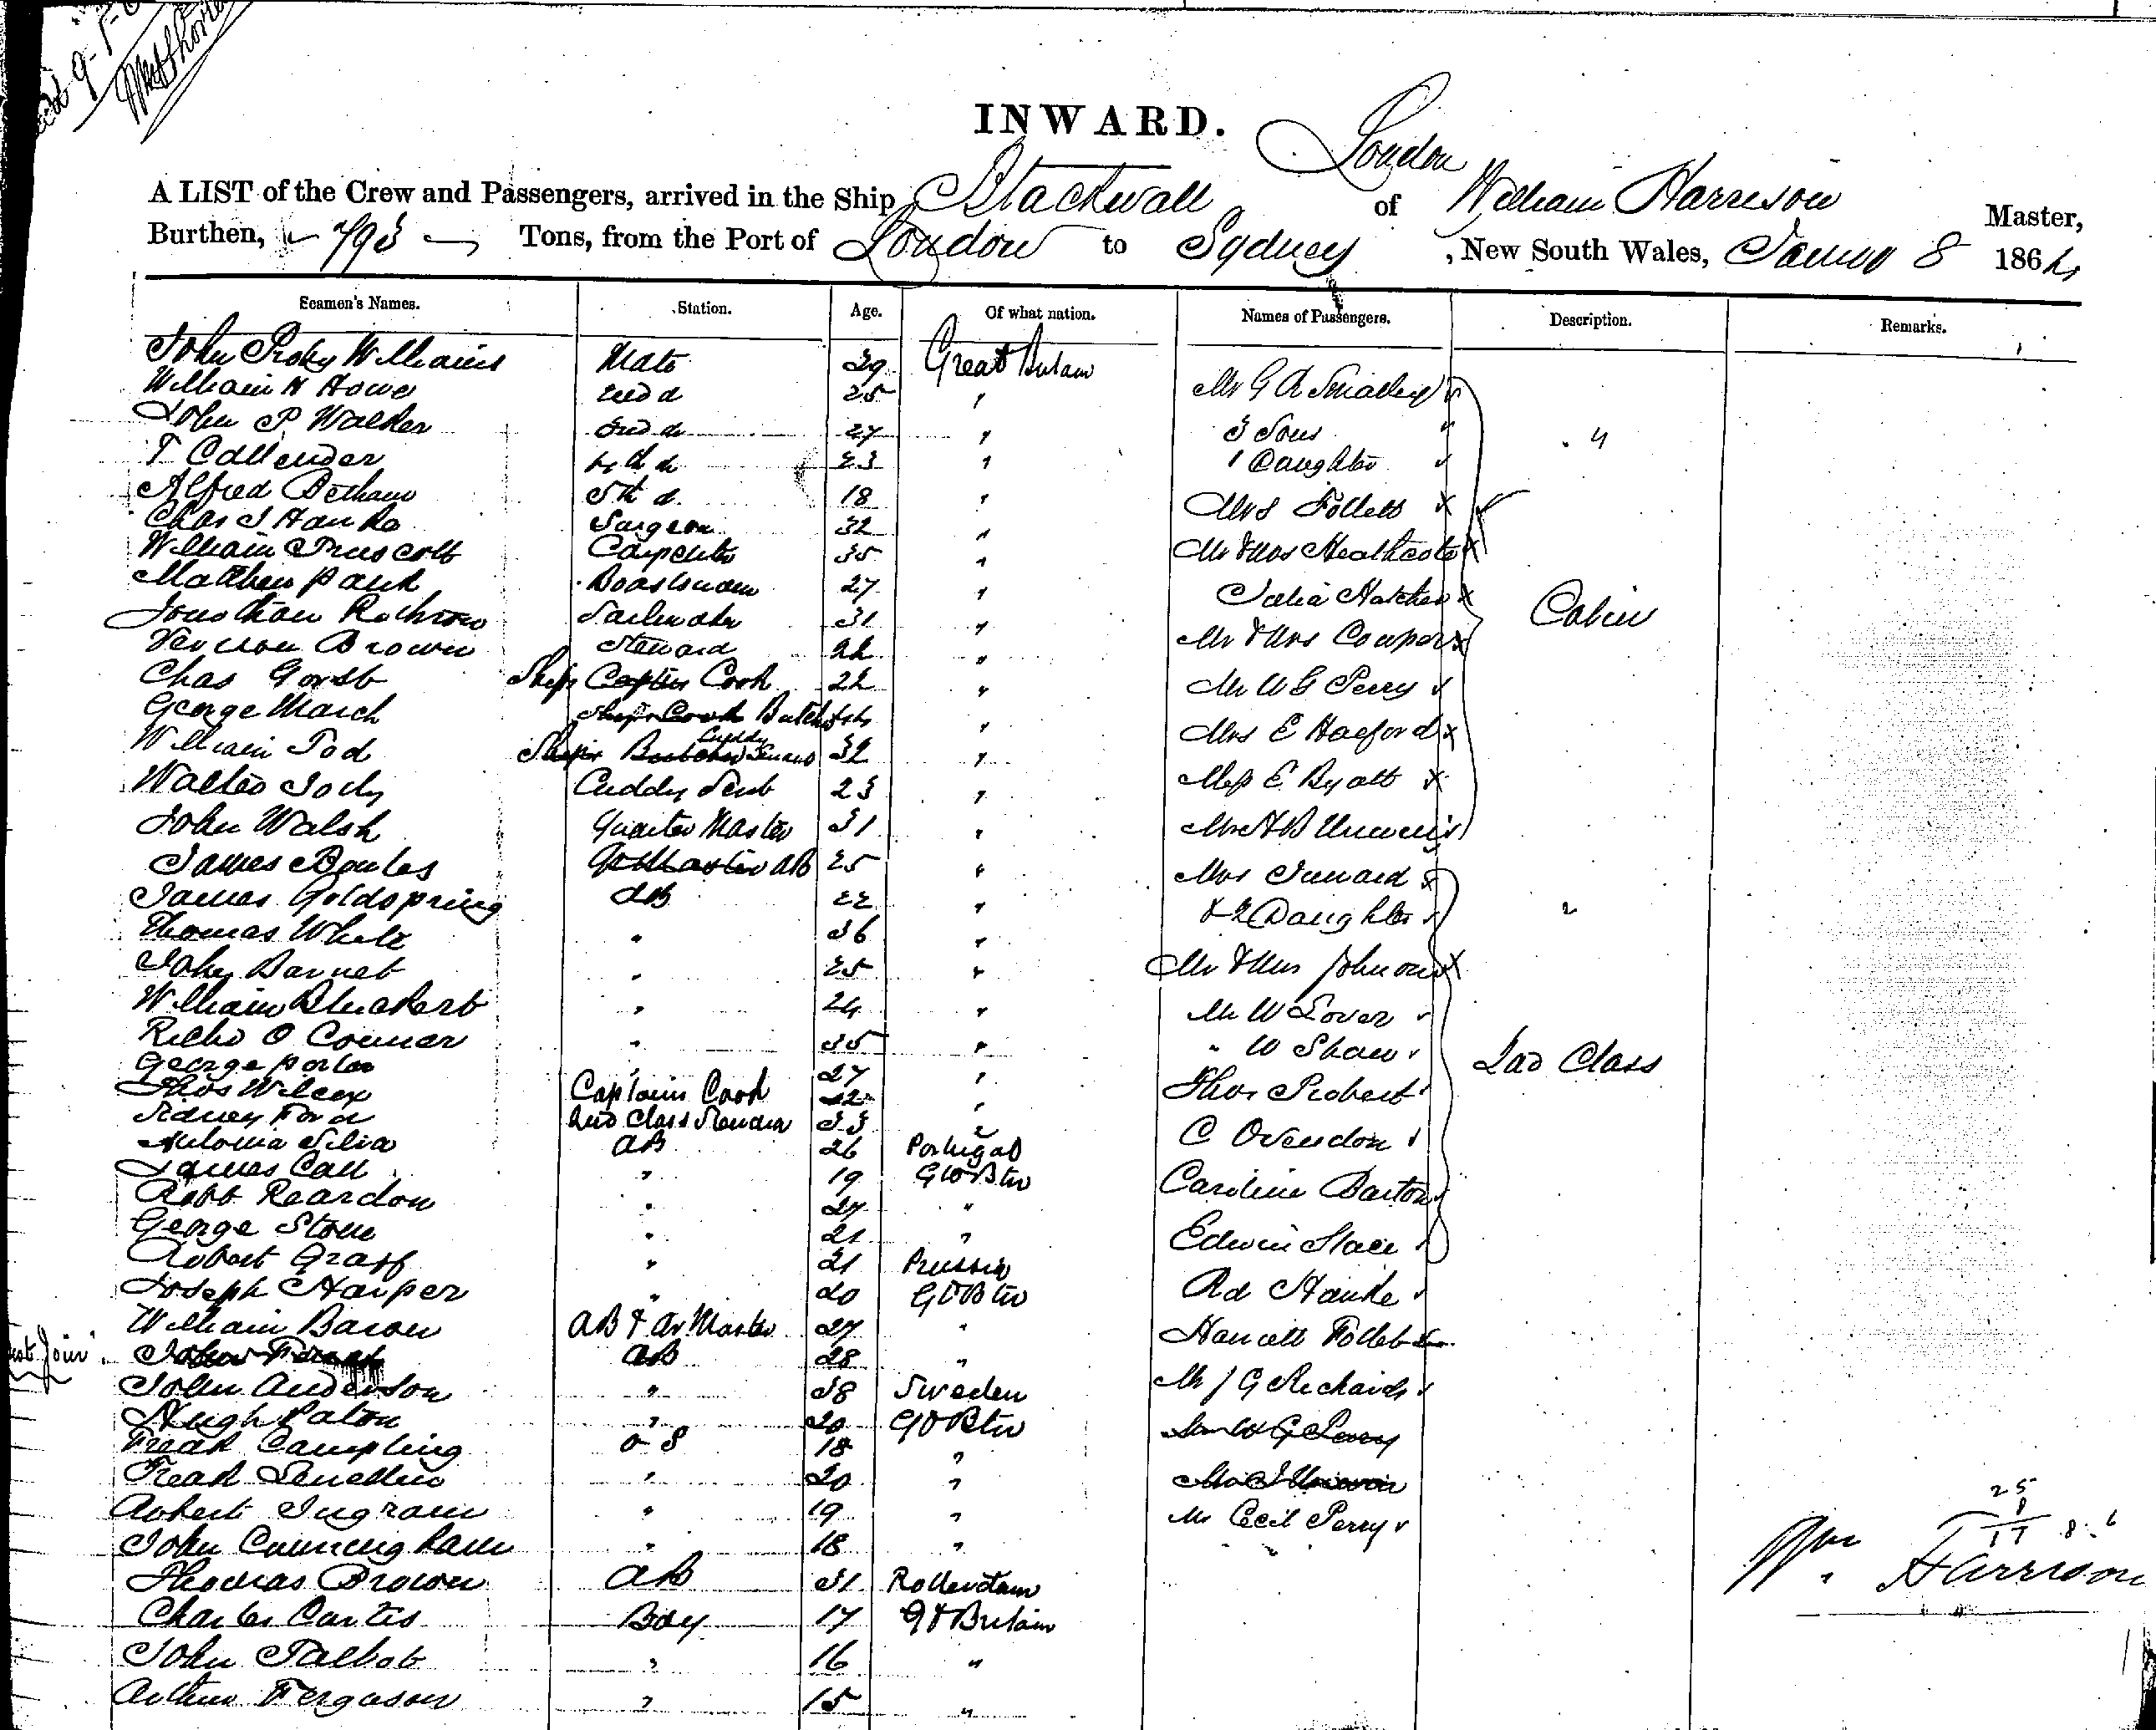 INWARD.
London
A LIST of the Crew and Passengers, arrived in the Ship Blackwall of William Harrison Master,
Burthen, 793 Tons, from the Port of London to Sydney, New South Wales, 8 1864
Seamen's Names. Station. Age. Of what nation. Names of Passengers. Description. Remarks.
John Proby Williams Mate 29 Great Britain
William H Howe 2nd d 25 " Mr G R Smalley
John P Walker 3rd d 27 " 3 Sons "
T Callender 4th d 23 " 1 Daughter
Alfred Betham 5th d 18 "
Chas J Hanks Surgeon 32 " Mrs Follett
William Truscott Carpenter 35 " Mr & Mrs Heathcote
Matthew Pauk Boatswain 27 " Hatcher
Jonathan Sailmaker 31 " Cabin
Vernon Brown Steward 22 " Mr & Mrs Cowper
Chas Gorst Ships Captns Cook 22 " Mr W G Perry
George March Ships Cook Butcher "
William Tod Ships Butcher Cuddy Servant 32 " Mrs E
Walter Cuddy Servt 23 " Miss E Byatt
John Walsh Quarter Master 31 "
James Bowles Qr Master AB 25 "
James Goldspring AB 22 " & 2 Daughters "
Thomas White " 36 "
John Barnet " 25 " Mr & Mrs Johnson
William " 24 " Mr W Lover
O Conner " 35 " " W Shaw 2nd Class
George Porter " 27 "
Thos Wilcox Captains Cook 42 " Thos Probert
Sidney Ford 2nd Class Steward 33 "
Antonia Silva AB 26 Portugal C Ovendon
James Call " 19 Gt Btn
Robt Reardon " 27 " Caroline Barton
George Stone " 21 "
Robert Graff " 21 Prussia Edwin
Joseph Harper " 20 Gt Btn Rd Hanke
William Bacon AB & Qr Master 27 "
John AB 28 " Follett
John Anderson " 38 Sweden Mr J G Richards
Hugh Paton " 20 Gt Btn Mr W G Perry
Fredk Campling O S 18 "
Fredk " 20 "
Robert Ingram " 19 " Mr Cecil Perry
John Cunningham " 18 "
Thomas Brown AB 31 Rotterdam
Charles Curtis Boy 17 Gt Britain
John Talbot " 16 "
Arthur Ferguson " 15 "
25
8
17
Wm Harrison